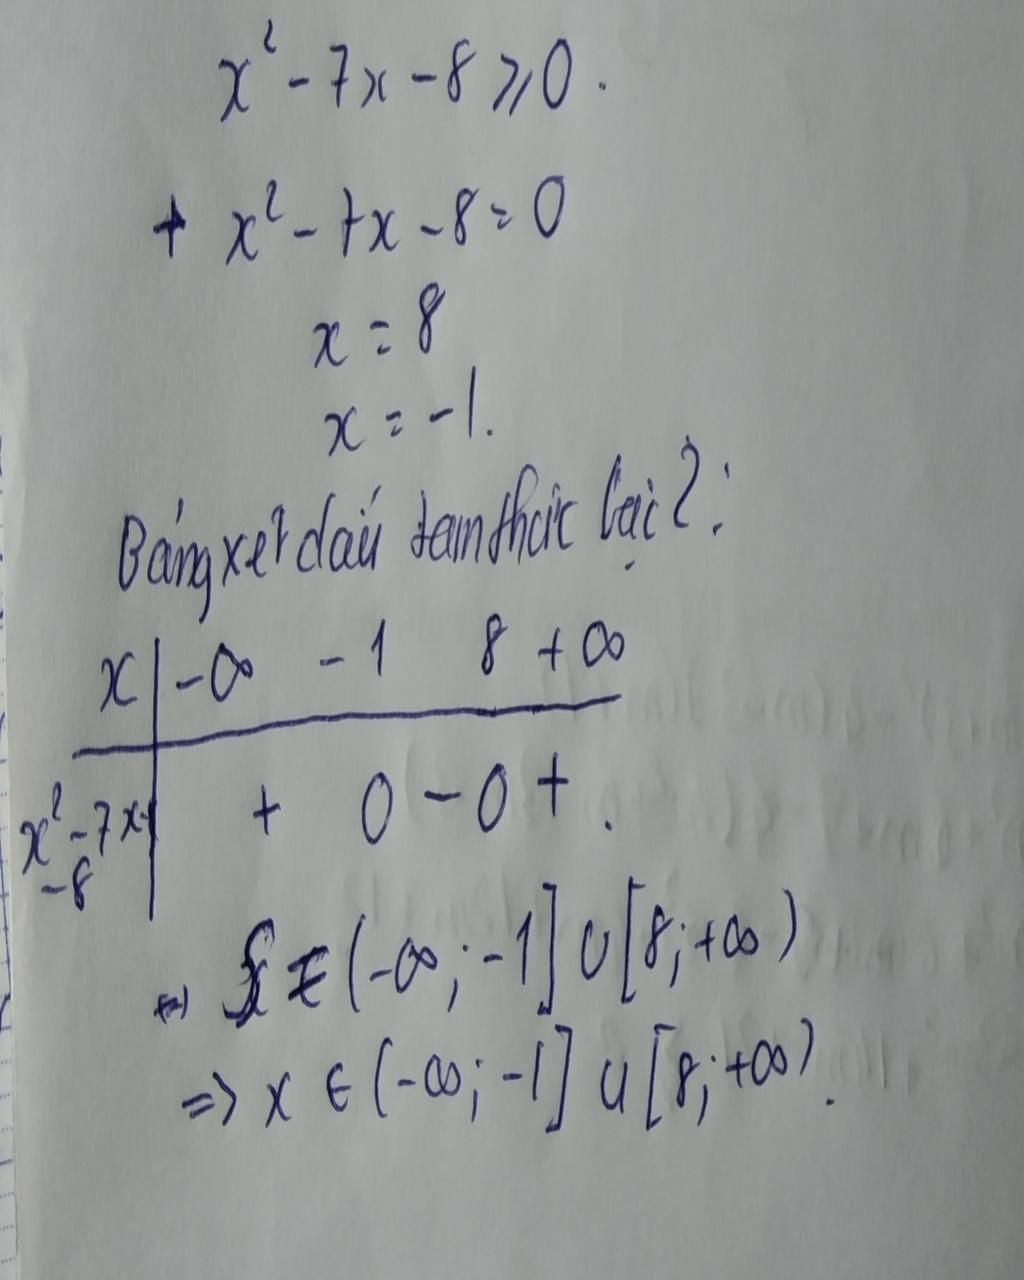 x² - 7x - 8 ≥ 0.
+ x² - 7x - 8 = 0
x = 8
x = -1.
Bảng xét dấu tam thức bậc 2:
x | -∞ -1 8 +∞
x² - 7x - 8 | + 0 - 0 + .
⇔ S = (-∞; -1] ∪ [8; +∞)
=> x ∈ (-∞; -1] ∪ [8; +∞).